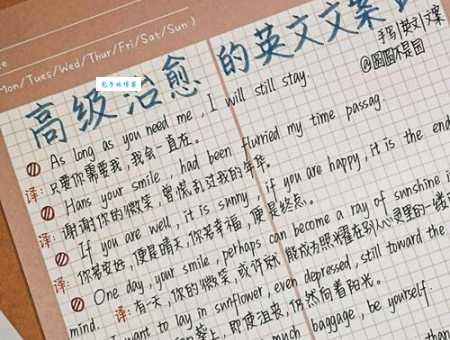 Mon/Tues/Wed/Thur/Fri/Sat/Sun)
高级治愈的英文文案
手写|英文|文案
@圆圆不是圆
As long as you need me, I will still stay.
译:只要你需要我,我会一直在。
Hans your smile, had been flurried my time passag
译:谢谢你的微笑,曾慌乱过我的年华。
If you are well, it is sunny, if you are happy, it is the end
译:你若安远,便是晴天,你若幸福,便是终点。
One day, your smile, perhaps can become a ray of sunshine i
mind. 译:有一天,你的微笑,或许就能成为照耀在别人心灵里的一缕
want to lay in sunflower, even depressed, still toward the
即使沮丧,仍然向着阳光。
much baggage, be yourself.